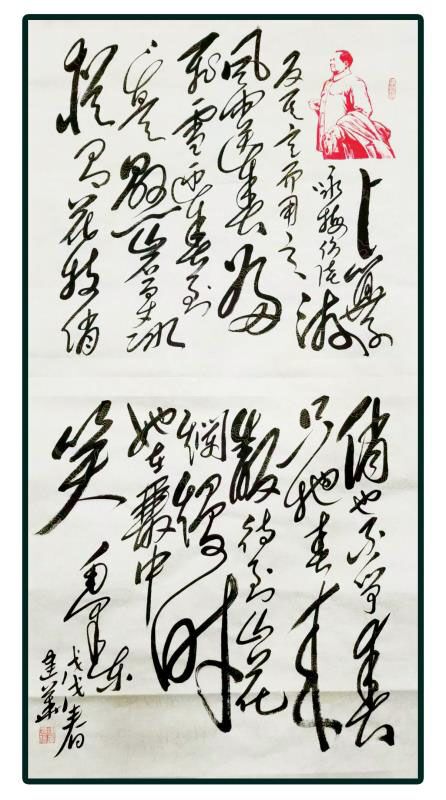 卜算子
咏梅 依陆游
反其意而用之
风雨送春归
飛雪迎春到
已是懸崖百丈冰
犹有花枝俏
俏也不争春
只把春来
報待到山花
爛漫时
她在叢中
笑
毛泽东
戊戌春
建華